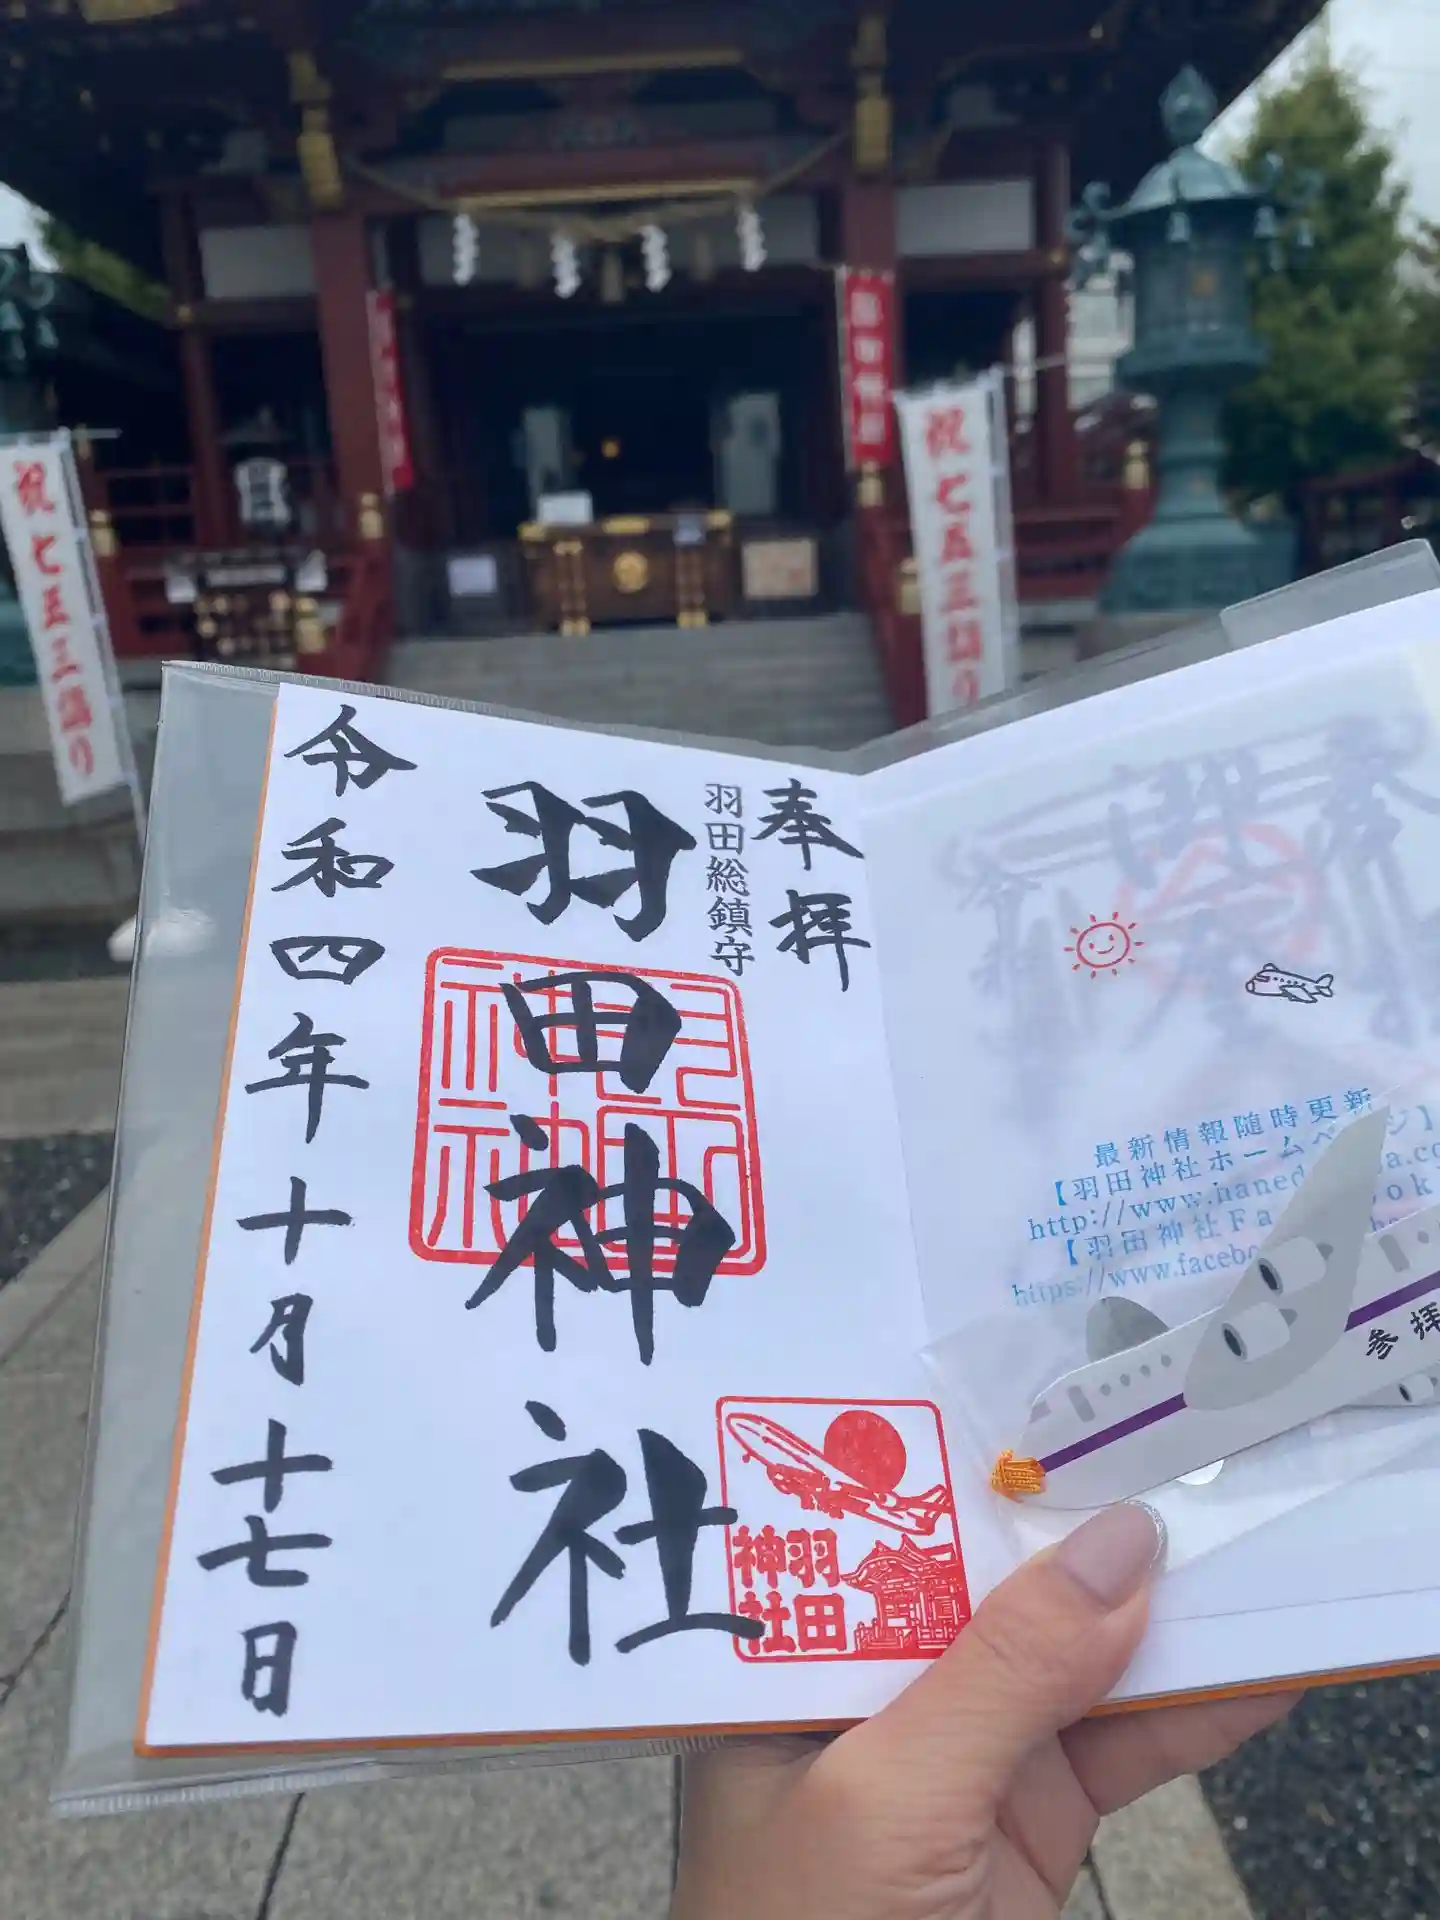 奉拝
羽田総鎮守
羽田神社
令和四年十月十七日
羽田
神社
最新情報随時更新
【羽田神社ホームページ】
http://www.haned
【羽田神社Fa
https://www.facebo
参拝
祝七五三詣り
祝七五三詣り